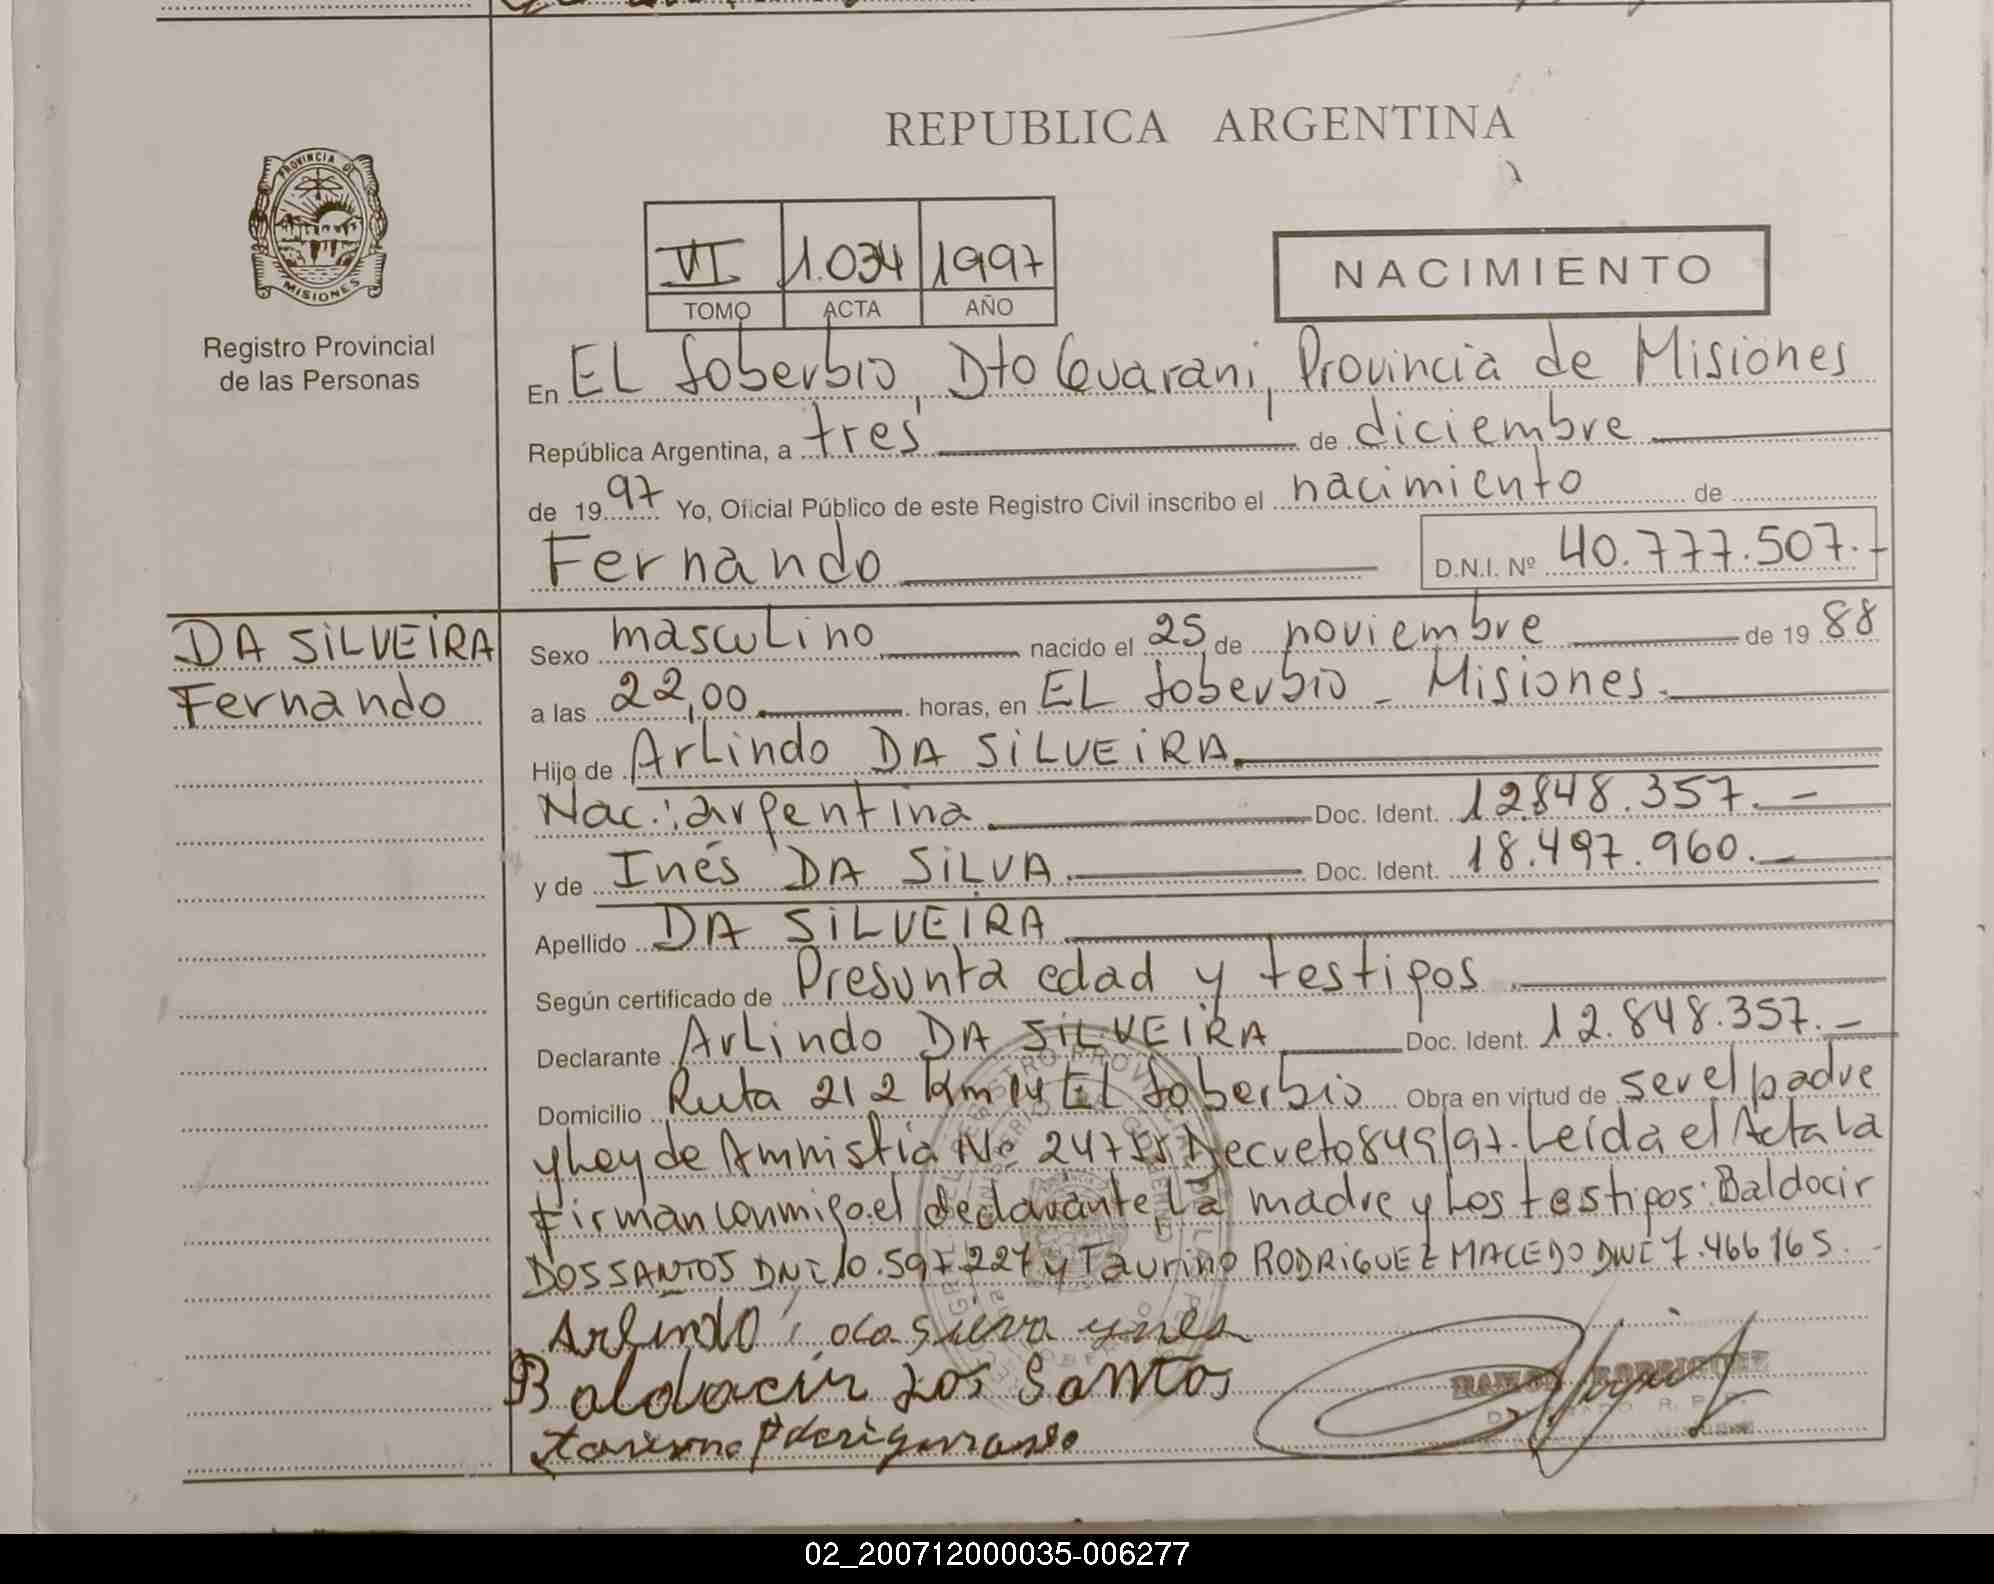 REPUBLICA ARGENTINA
PROVINCIA DE
MISIONES
Registro Provincial
de las Personas
VI 1.034 1997
TOMO ACTA AÑO
NACIMIENTO
En EL Soberbio, Dto Guarani, Provincia de Misiones
República Argentina, a tres de diciembre
de 1997 Yo, Oficial Público de este Registro Civil inscribo el nacimiento de
Fernando D.N.I. Nº 40.777.507.-
DA SILVEIRA
Fernando
Sexo masculino nacido el 25 de noviembre de 1988
a las 22,00 horas, en EL Soberbio - Misiones.
Hijo de Arlindo DA SILVEIRA.
Nac.: argentina Doc. Ident. 12.848.357.-
y de Inés DA SILVA. Doc. Ident. 18.497.960.-
Apellido DA SILVEIRA
Según certificado de Presunta edad y testigos
Declarante Arlindo DA SILVEIRA Doc. Ident. 12.848.357.-
Domicilio Ruta 212 Km 14 EL Soberbio Obra en virtud de ser el padre
y Ley de Amnistia Nº 24755 Decreto 849/97. Leída el Acta la
firman conmigo el declarante, la madre y los testigos: Baldocir
DOS SANTOS DNI 10.597.227 y Taurino RODRIGUEZ MACEDO DNI 7.466165.-
Arlindo da silva ynes
Baldacir dos Santos
RAMON RODRIGUEZ